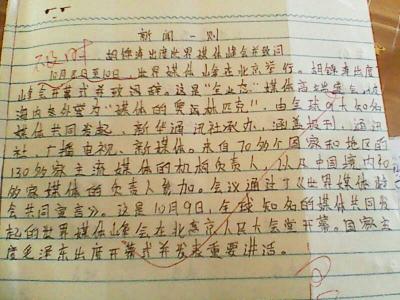 新闻一则
胡锦涛出席世界媒体峰会并致词
10月8日至10日，世界媒体峰会在北京举行。胡锦涛出席
峰会开幕式并致词。这是"企业态"媒体高端盛会，被
海内外外誉为"媒体的奥运林匹克"，由全球9大知名
媒体共同发起，新华通讯社承办，涵盖报刊、通讯
社、广播电视、新媒体。来自70多个国家和地区的
130多家主流媒体的机构负责人，以及中国境内40
多家媒体的负责人参加。会议通过了《世界媒体峰
会共同宣言》。这是10月9日，全球知名的媒体共同发
起的世界媒体峰会在北京人民大会堂开幕。国家主
席出席开幕式并发表重要讲话。